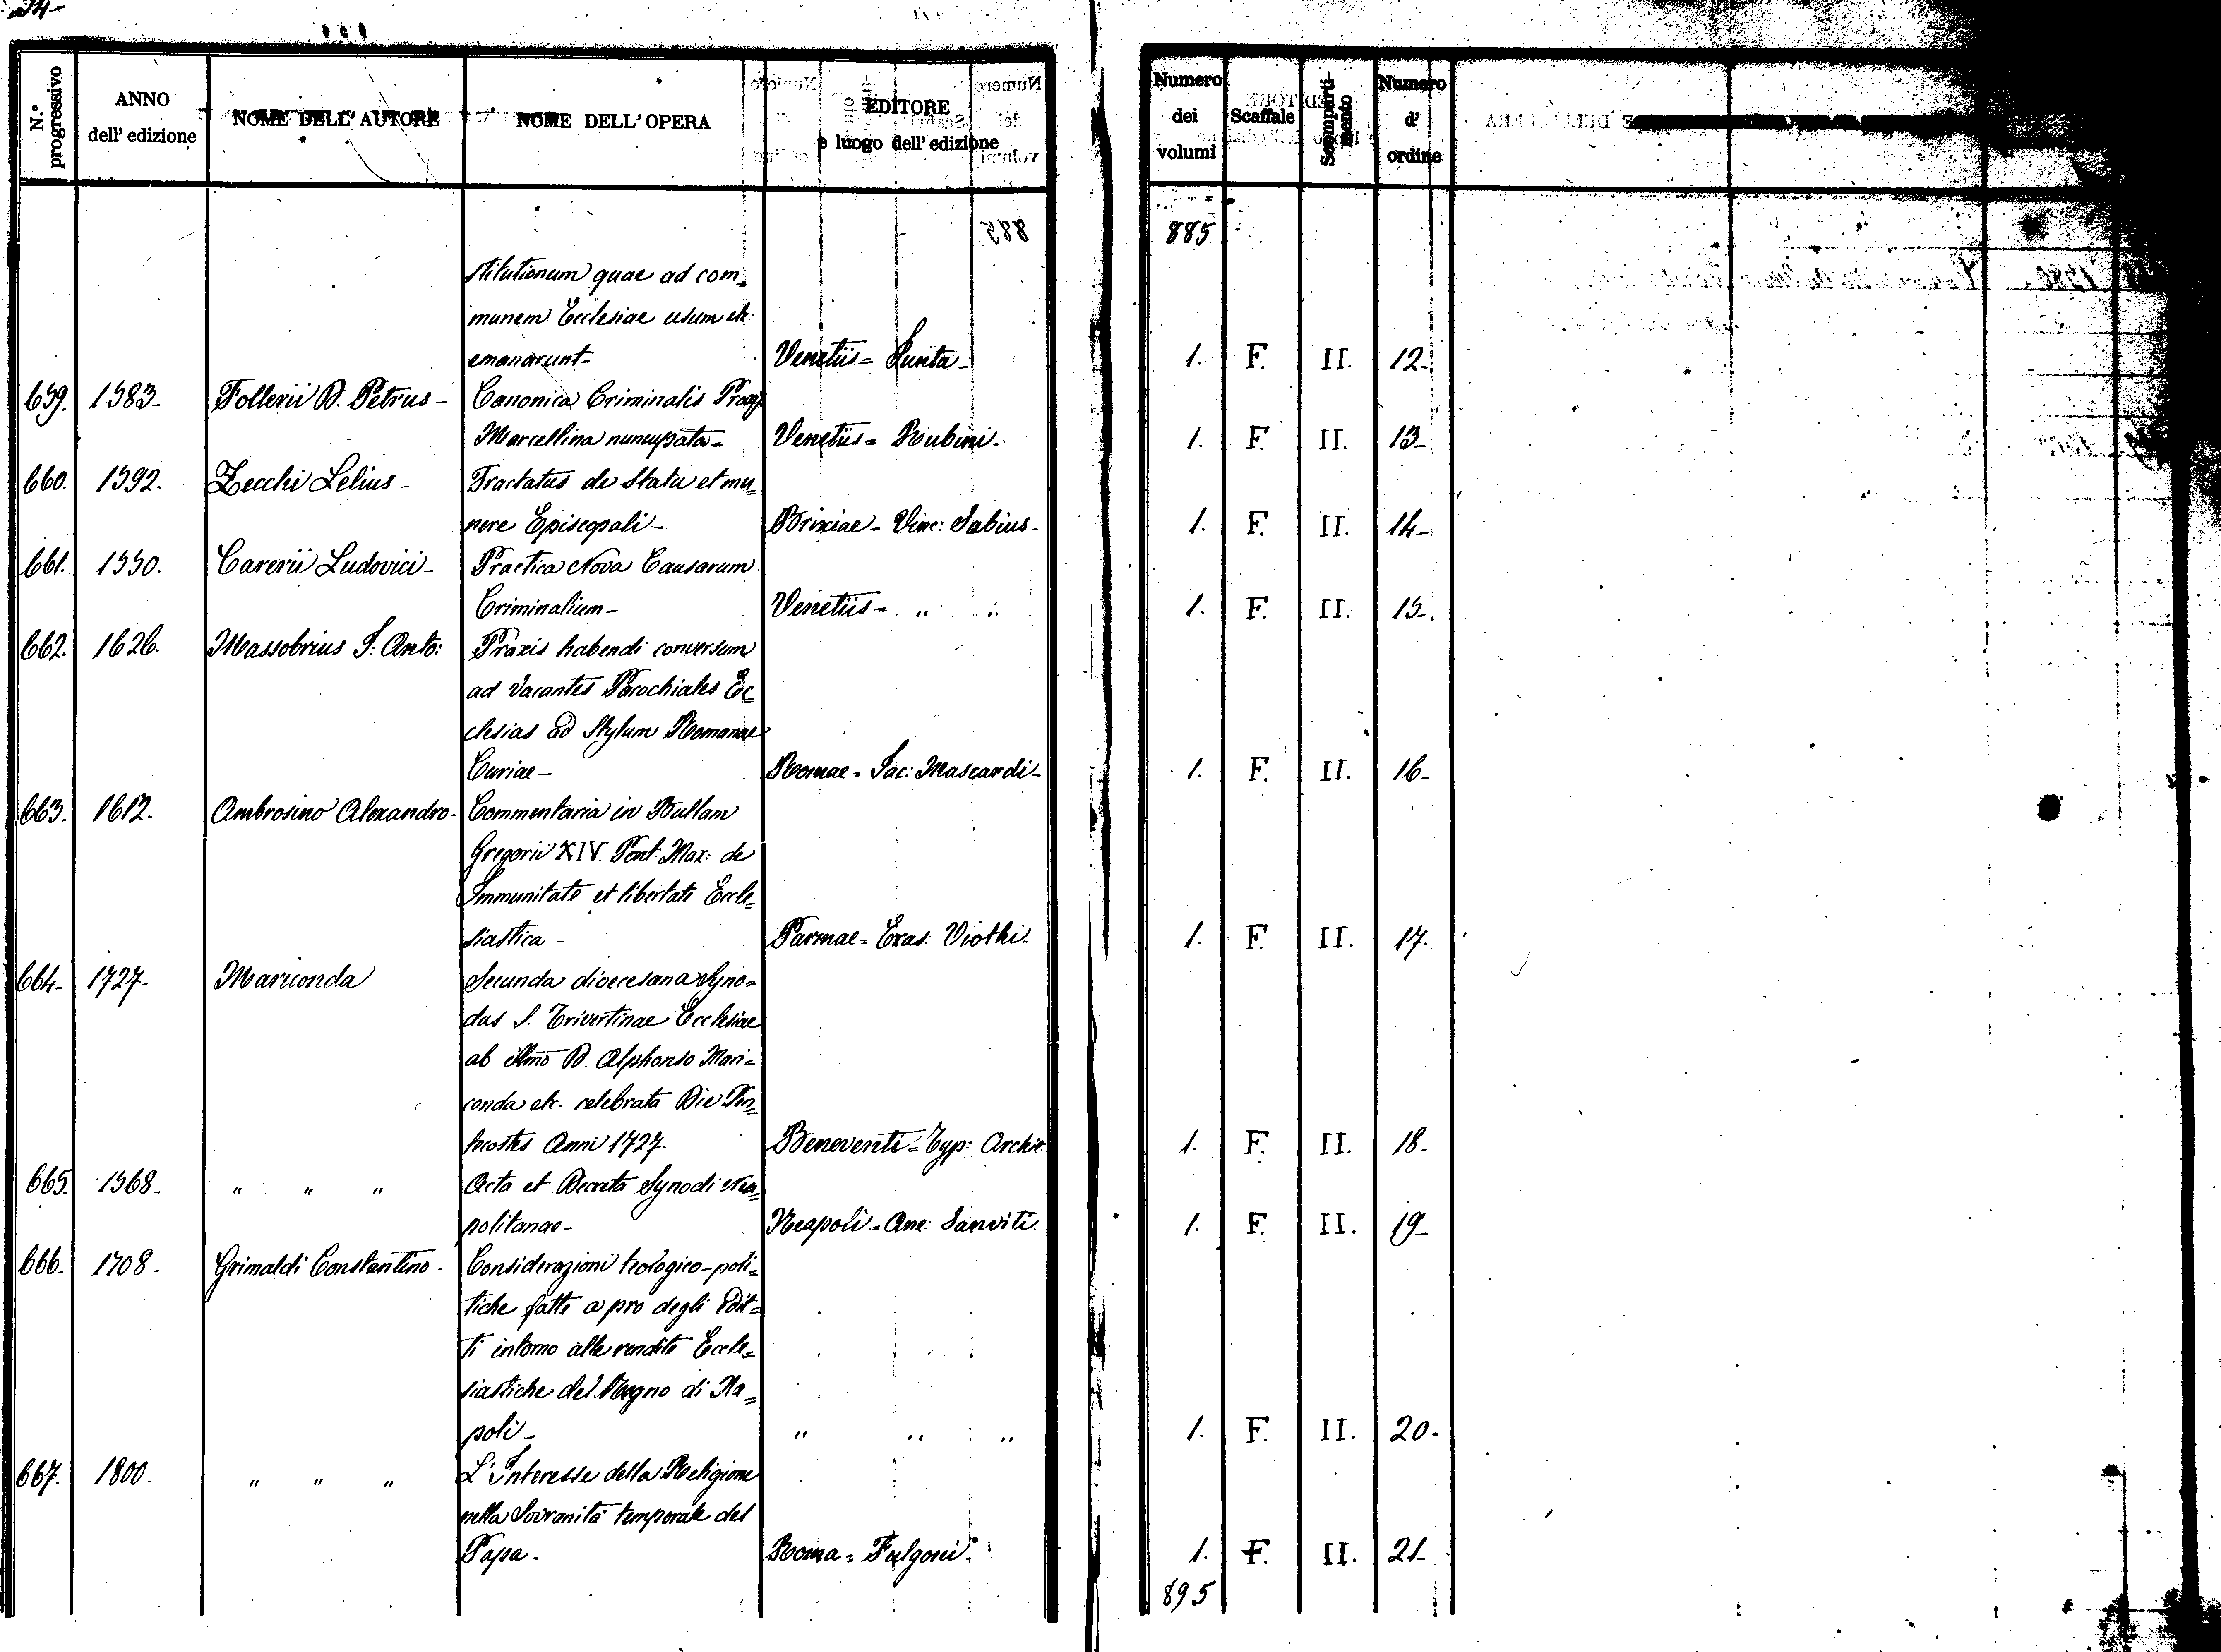 N.° progressivo | ANNO dell' edizione | NOME DELL' AUTORE | NOME DELL' OPERA | EDITORE e luogo dell' edizione | Numero dei volumi | Scaffale | Scomparti-mento | Numero d' ordine
885
stitutionum quae ad com=
munem Ecclesiae usum etc.
emanarunt- | Venetiis= Junta- | 1. | F. | II. | 12.
659. | 1583- | Follerii D. Petrus- | Canonica Criminalis Praxis
Marcellina nuncupata= | Venetiis= Rubini. | 1. | F. | II. | 13-
660. | 1592. | Zecchi Lelius- | Tractatus de Statu et mu=
nere Episcopali- | Brixiae- Vinc: Sabius- | 1. | F. | II. | 14-
661. | 1550. | Carerii Ludovici- | Practica Nova Causarum
Criminalium- | Venetiis- " " | 1. | F. | II. | 15-
662. | 1626. | Massobrius J. Anto: | Praxis habendi conversum
ad Vacantes Parochiales Ec=
clesias ad Stylum Romanae
Curiae- | Romae= Jac: Mascardi- | 1. | F. | II. | 16-
663. | 1612. | Ambrosino Alexandro- | Commentaria in Bullam
Gregorii XIV. Pont. Max: de
Immunitate et libertate Eccle=
siastica- | Parmae= Eras: Viothi. | 1. | F. | II. | 17.
664- | 1727- | Mariconda | Secunda dioecesana Syno=
dus S. Trivertinae Ecclesiae
ab illmo D. Alphonso Mari=
conda etc. celebrata Die Pen=
tecostes Anni 1727. | Beneventi= Typ: Archie: | 1. | F. | II. | 18-
665. | 1568- | " " " | Acta et Decreta Synodi Nea=
politanae- | Neapoli= Ane: Sanviti. | 1. | F. | II. | 19-
666. | 1708- | Grimaldi Constantino- | Considerazioni teologico-poli=
tiche fatte a pro degli Edit=
ti intorno alle rendite Eccle=
siastiche del Regno di Na=
poli- | " " " | 1. | F. | II. | 20-
667. | 1800. | " " " | L'Interesse della Religione
nella Sovranità temporale del
Papa- | Roma= Fulgoni. | 1. | F. | II. | 21-
895